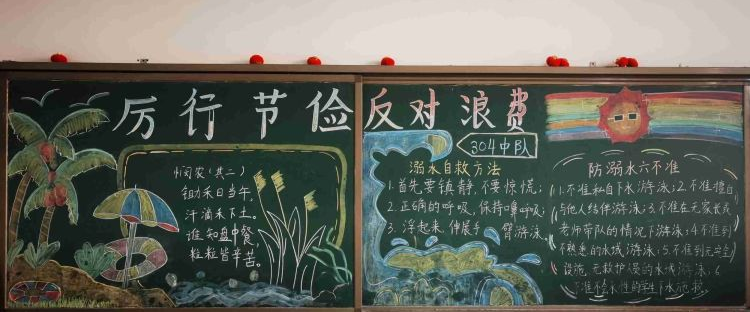 厉行节俭 反对浪费
304中队
悯农(其二)
锄禾日当午,
汗滴禾下土。
谁知盘中餐,
粒粒皆辛苦。
溺水自救方法
1.首先,要镇静,不要惊慌;
2.正确的呼吸,保持嘴呼吸;
3.浮起来,伸展手臂游泳。
防溺水六不准
1.不准私自下水游泳;2.不准擅自
与他人结伴游泳;3.不准在无家长或
老师带队的情况下游泳;4.不准到
不熟悉的水域游泳;5.不准到无安全
设施、无救护员的水域游泳;6.
不准不会水性的学生下水施救。